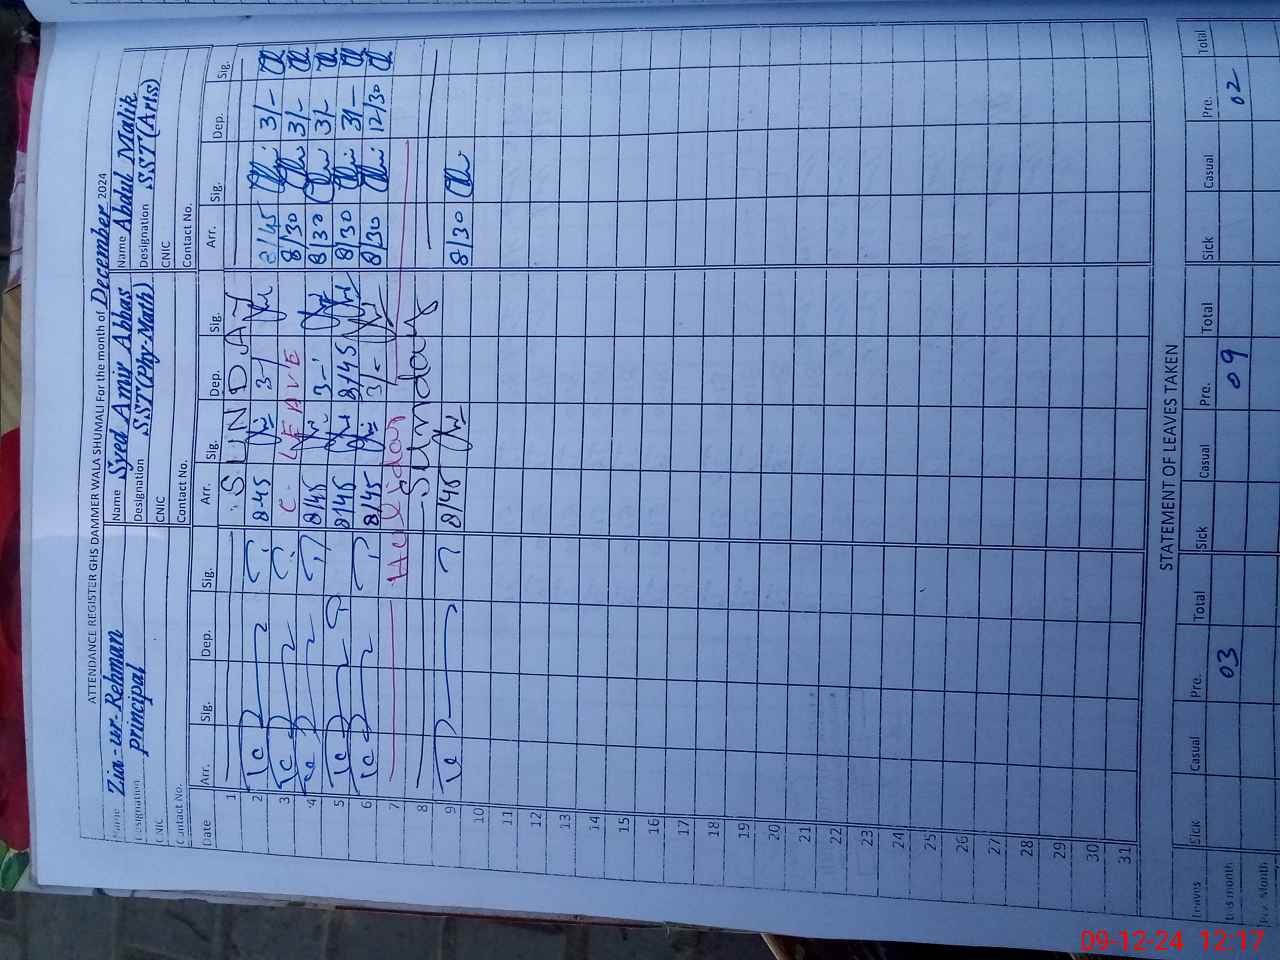 ATTENDANCE REGISTER GHS DAMMER WALA SHUMALI For the month of December 2024
Name Zia-ur-Rehman Name Syed Amir Abbas Name Abdul Malik
Designation Principal Designation SST(Phy-Math) Designation SST(Arts)
CNIC CNIC CNIC
Contact No. Contact No. Contact No.
Date Arr. Sig. Dep. Sig. Arr. Sig. Dep. Sig. Arr. Sig. Dep. Sig.
1 SUNDAY
2 8-45 3-/ 8/45 3/-
3 C. LEAVE 8/30 3/-
4 8/45 3-/ 8/30 3/-
5 8/45 8/45 8/30 3/-
6 8/45 3/- 8/30 12/30
7 Holiday
8 Sunday
9 8/45 8/30
10
11
12
13
14
15
16
17
18
19
20
21
22
23
24
25
26
27
28
29
30
31
STATEMENT OF LEAVES TAKEN
Leaves Sick Casual Pre. Total Sick Casual Pre. Total Sick Casual Pre. Total
This month 03 09 02
Pre. Month
09-12-24 12:17